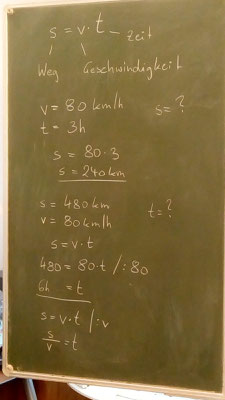 s = v · t – Zeit
Weg Geschwindigkeit
v = 80 km/h s = ?
t = 3h
s = 80 · 3
s = 240 km
s = 480 km t = ?
v = 80 km/h
s = v · t
480 = 80 · t /: 80
6h = t
s = v · t /: v
s/v = t